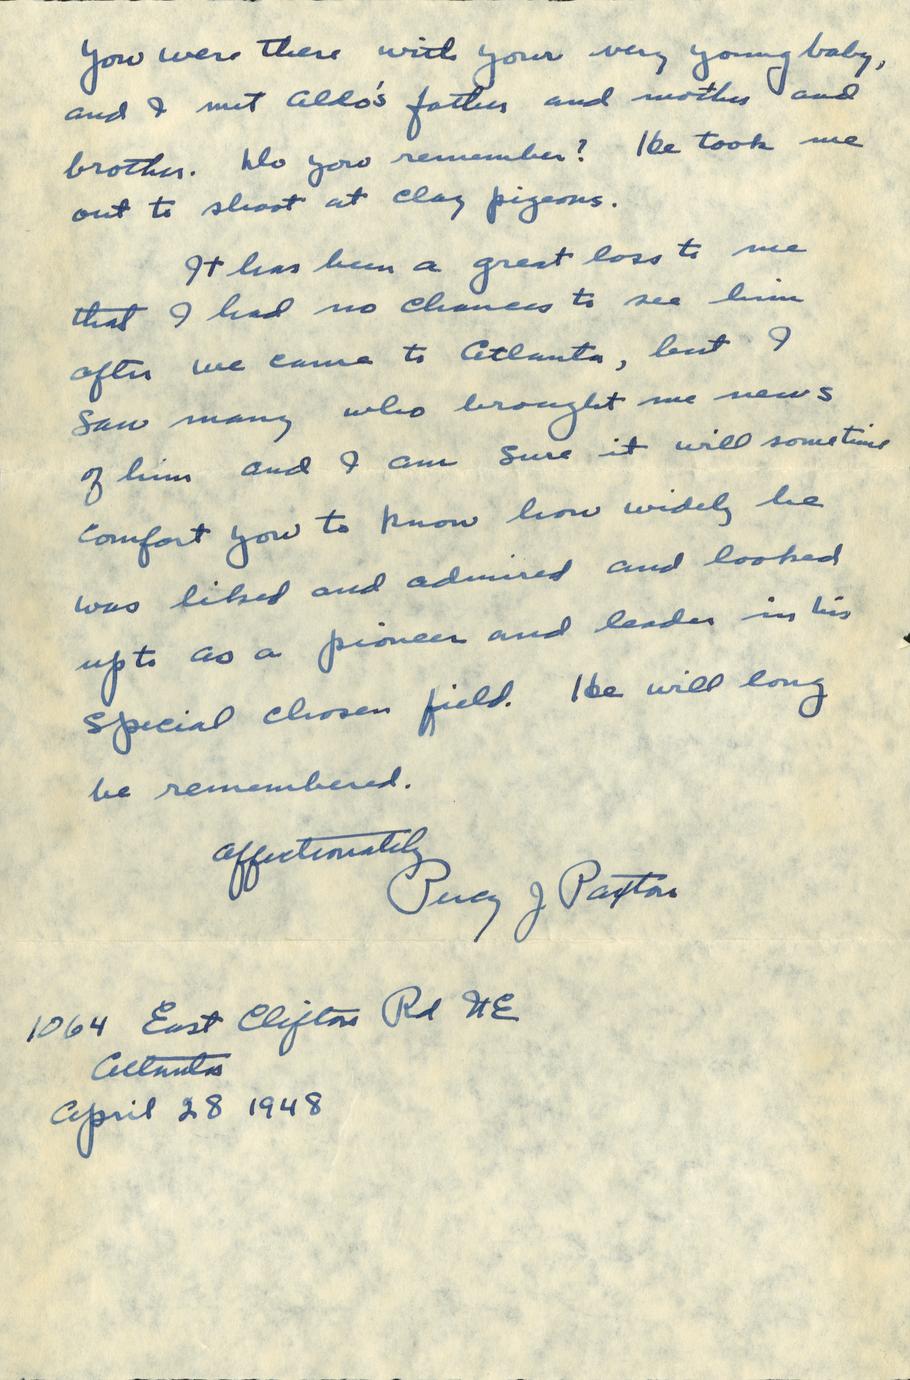 You were there with your very young baby,
and I met Aldo's father and mother and
brother. Do you remember? He took me
out to shoot at clay pigeons.
It has been a great loss to me
that I had no chances to see him
after we came to Atlanta, but I
saw many who brought me news
of him and I am sure it will sometime
comfort you to know how widely he
was liked and admired and looked
up to as a pioneer and leader in his
special chosen field. He will long
be remembered.
Affectionately
Percy J Paxton
1064 East Clifton Rd NE
Atlanta
April 28 1948